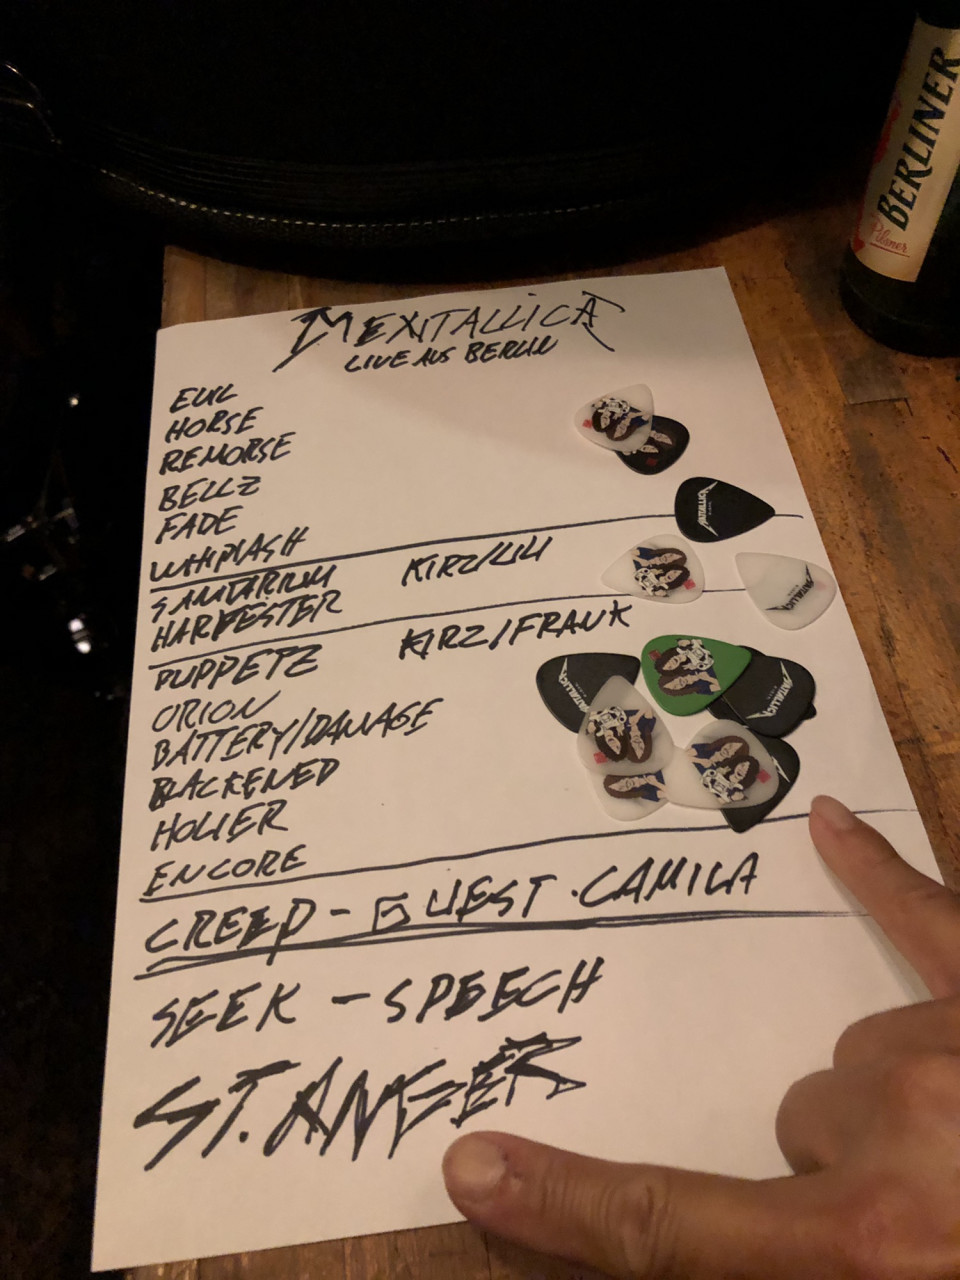 BERLINER
Pilsner
MEXITALLICA
LIVE AUS BERLIN
EVIL
HORSE
REMORSE
BELLZ
FADE
WHIPLASH
SANITARIUM KIRZ/LILI
HARVESTER
PUPPETZ KIRZ/FRANK
ORION
BATTERY/DAMAGE
BLACKENED
HOLIER
ENCORE
CREEP - GUEST - CAMILA
SEEK - SPEECH
ST. ANGER